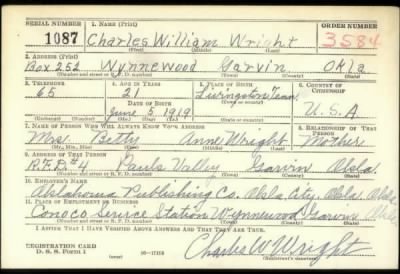 SERIAL NUMBER 1. NAME (Print) ORDER NUMBER
1087 Charles William Wright 3584
(First) (Middle) (Last)
2. ADDRESS (Print)
Box 252 Wynnewood Garvin Okla
(Number and street or R. F. D. number) (Town) (County) (State)
3. TELEPHONE 4. AGE IN YEARS 5. PLACE OF BIRTH 6. COUNTRY OF CITIZENSHIP
65 21 Livingston Tenn.
DATE OF BIRTH (Town or county)
June 5 1919 U.S.A
(Mo.) (Day) (Yr.) (State or country)
7. NAME OF PERSON WHO WILL ALWAYS KNOW YOUR ADDRESS 8. RELATIONSHIP OF THAT PERSON
Mrs Anne Wright Mother
(Mr., Mrs., Miss) (First) (Middle) (Last)
9. ADDRESS OF THAT PERSON
R.F.D. #4 Pauls Valley Garvin Okla.
(Number and street or R. F. D. number) (Town) (County) (State)
10. EMPLOYER'S NAME
Oklahoma Publishing Co. Okla. City, Okla. Okla
11. PLACE OF EMPLOYMENT OR BUSINESS
Conoco Service Station Wynnewood Garvin Okla.
(Number and street or R. F. D. number) (Town) (County) (State)
I AFFIRM THAT I HAVE VERIFIED ABOVE ANSWERS AND THAT THEY ARE TRUE.
REGISTRATION CARD
D. S. S. Form 1 (over) Charles W Wright
(Registrant's signature)